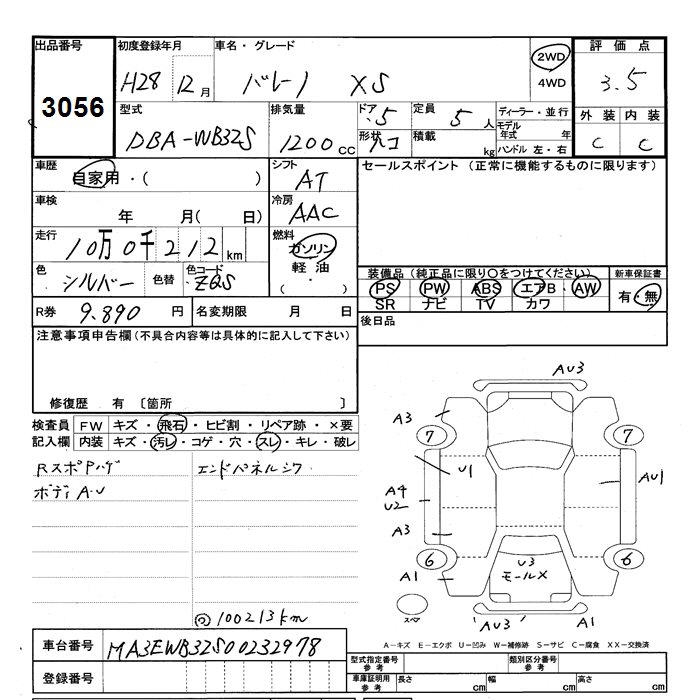 出品番号 初度登録年月 車名・グレード 2WD 評価点
3056 H28 12月 バレーノ XS 4WD 3.5
型式 排気量 ドア 5 定員 5人 ディーラー・並行 外装 内装
DBA-WB32S 1200cc 形状 積載 kg モデル年式 年 C C
ハンドル 左・右
車歴 自家用・( ) シフト AT セールスポイント (正常に機能するものに限ります)
車検 年 月( 日) 冷房 AAC
走行 10万0千212km 燃料 ガソリン
軽油
( ・ )
色 シルバー 色替 色コード ZQS
装備品 (純正品に限り○をつけてください) 新車保証書
PS PW ABS エアB AW 有・無
SR ナビ TV カワ
R券 9.890円 名変期限 月 日 後日品
注意事項申告欄 (不具合内容等は具体的に記入して下さい)
修復歴 有 〔箇所 〕
検査員 FW キズ・飛石・ヒビ割・リペア跡・×要
記入欄 内装 キズ・汚レ・コゲ・穴・スレ・キレ・破レ
Rスポアハゲ エンドパネルシワ
ボディA.U
100213km
AU3
A3
7 7
U1 AU1
A4
U2
A3
6 6
A1
U3
モールX
スペア
AU3 A1
A-キズ E-エクボ U-凹み W-補修跡 S-サビ C-腐食 XX-交換済
車台番号 MA3EWB32S00232978
型式指定番号 参考 類別区分番号 参考
登録番号 車庫証明用 参考 長さ cm 幅 cm 高さ cm